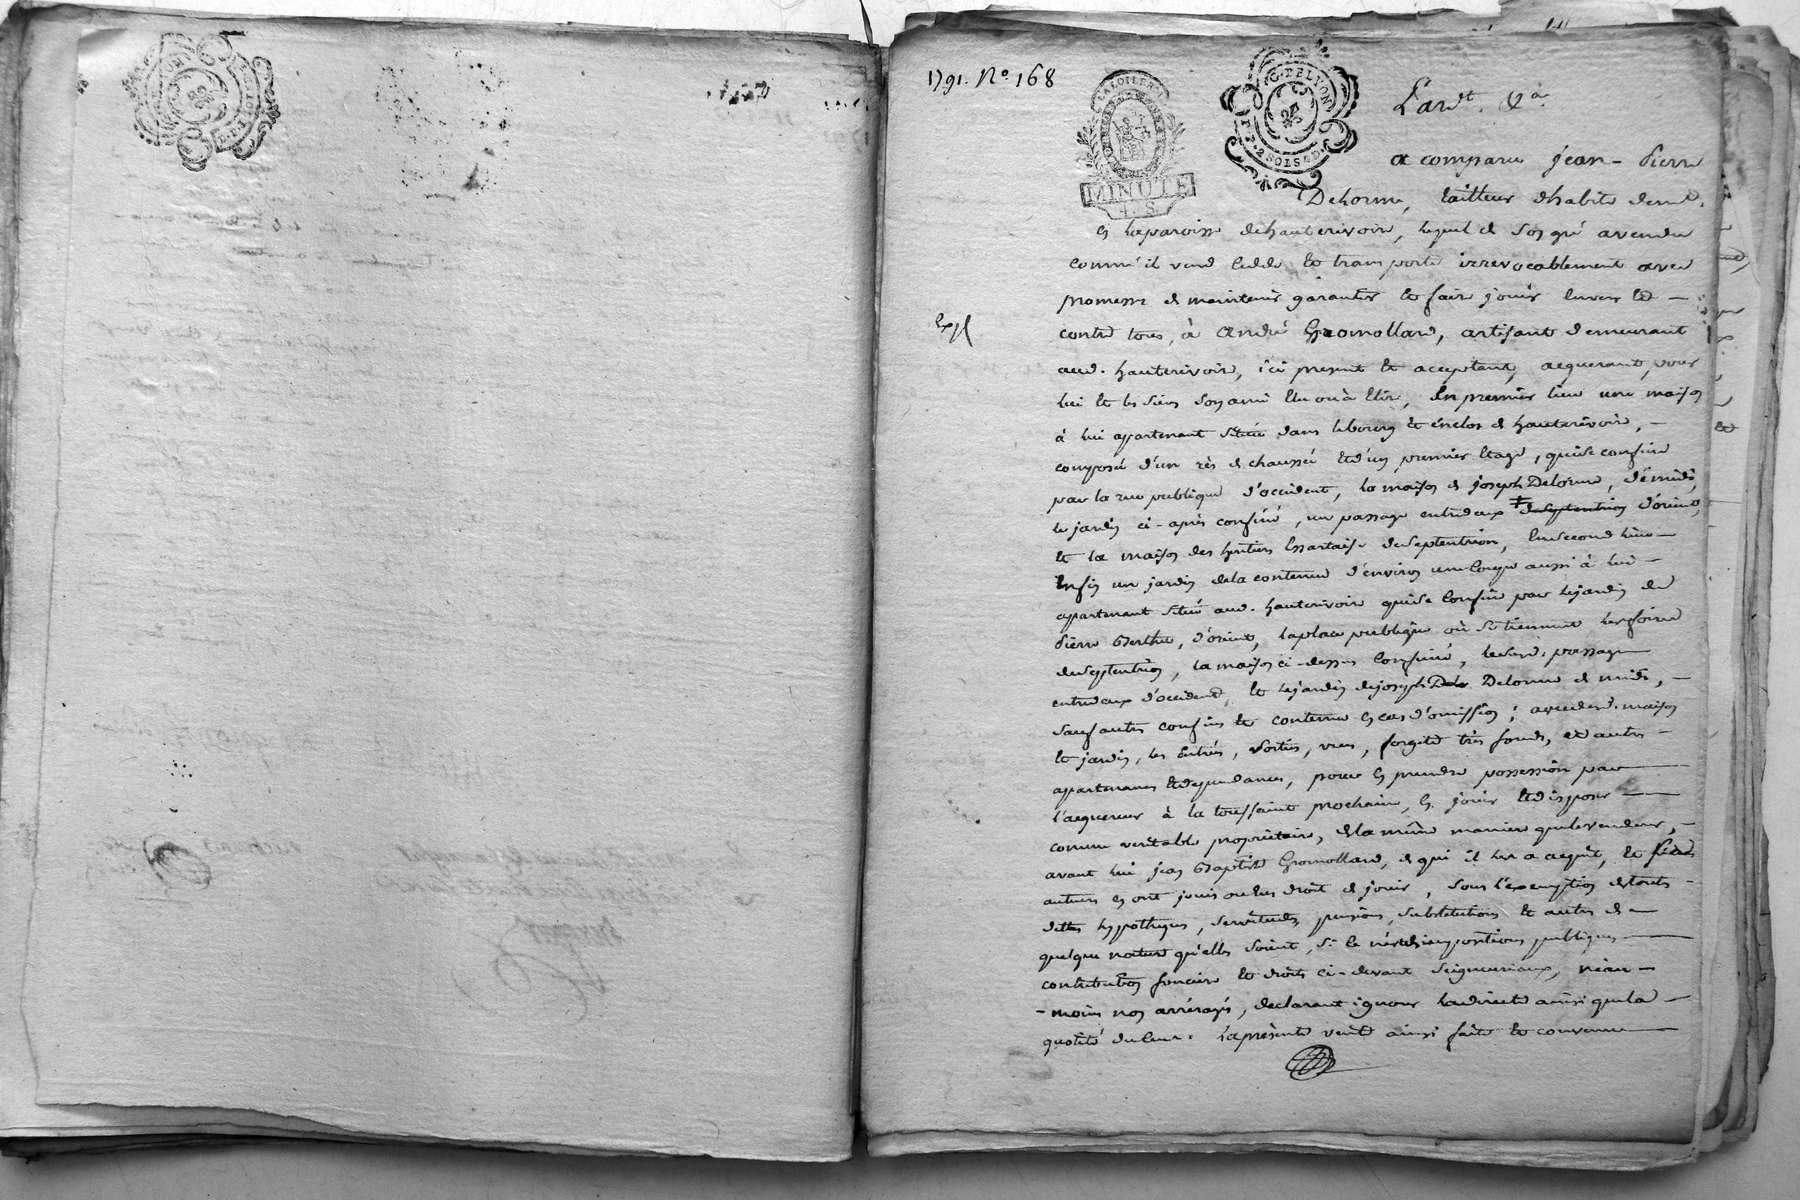 1791. N° 168
LA LOI LE ROI
G. DE LYON
F. P. 2 SOLS 4 D.
MINUTE
4. S
L'an & ca
a comparu jean-Pierre
Delorme, tailleur d'habits demt.
en la paroisse de hauterivoire, lequel de son gré a vendu
comme il vend cedde et transporte irrevocablement avec
promesse de maintenir garantir et faire jouir envers et
Exp
contre tous, à André Gromollard, artisant demeurant
aud. hauterivoire, ici present et acceptant, acquerant, pour
lui et les siens son ami élu ou à élire, En premier lieu une maison
à lui appartenant située dans le bourg et énclos de hauterivoire,
composé d'un rès de chaussée et d'un premier étage, qui se confine
par la rue publique d'occident, la maison de joseph Delorme, de midi,
le jardin ci-après confiné, un passage entredeux de septentrion d'orient,
et la maison des heritiers Essartaise de septentrion, En second lieu
enfin un jardin de la contenue d'environ une coupe aussi à lui
appartenant situé aud. hauterivoire qui se confine par le jardin de
Pierre Berthet, d'orient, la place publique où se tiennent les foires
de septentrion, la maison ci-dessus confinée, led. passage
entredeux d'occident, et le jardin de joseph Delorme de midi,
sauf autres confins et contenue en cas d'omission; avec lesd. maison
et jardin, les Entrées, sorties, vues, forgets très fonds, et autres
appartenances et dépendances, pour en prendre possession par
l'acquereur à la toussaint prochaine, en jouir et disposer
comme veritable propriétaire, de la même maniere que le vendeur,
avant lui jean Baptiste Gromollard, de qui il les a acquit, et
auteurs en ont jouis ou eu droit de jouir, sous l'exemption de touts
dettes hypotheques, servitudes, pensions, substitutions et autres de
quelque nature qu'elles soient, si ce n'est des impositions publiques
contribution fonciere et droits ci-devant seigneuriaux, néan-
-moins nos arrérages, declarant ignorer la directe ainsi que la
quotité du leur. La présente vente ainsi faite et convenue